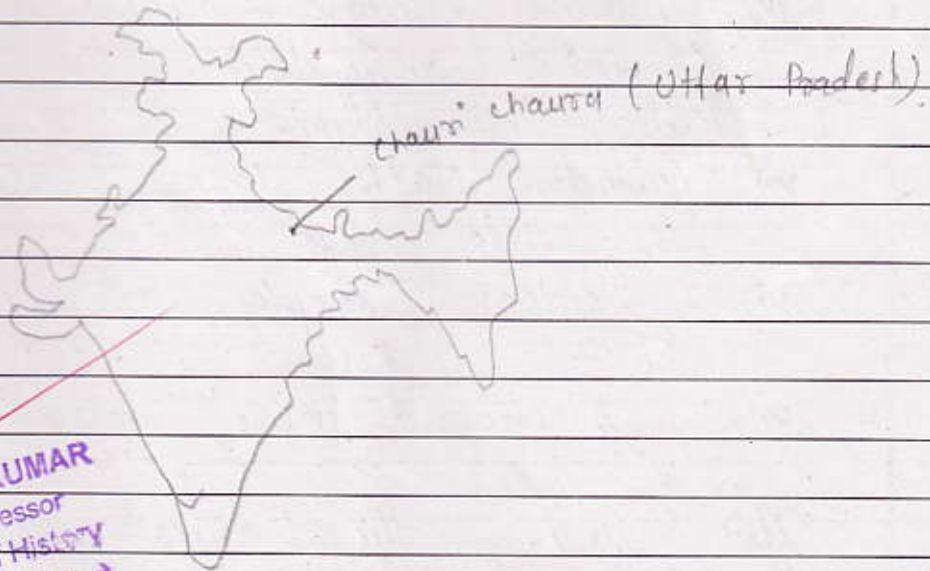 chauri chaura (Uttar Pradesh).
KUMAR
essor
History